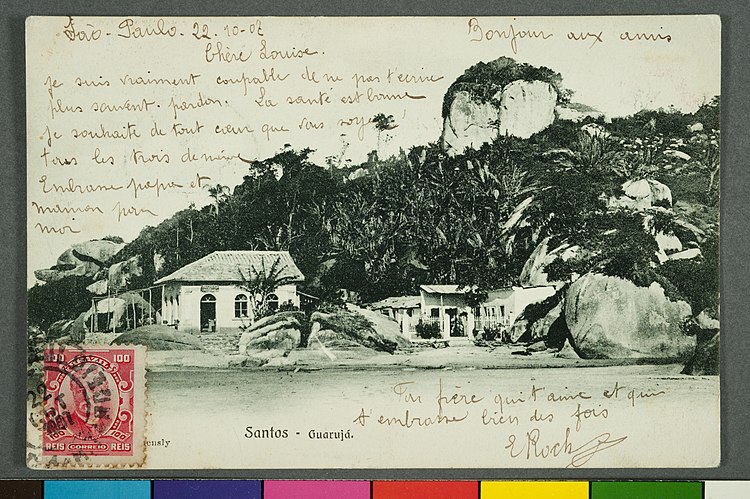 São-Paulo. 22.10-07
Bonjour aux amis
Chère Louise.
je suis vraiment coupable de ne pas t'ecrire
plus souvent. pardon. La santé est bonne
je souhaite de tout cœur que vous soyez
tous les trois de même
Embrasse papa et
maman pour
moi
Ton frère qui t'aime et qui
t'embrasse bien des fois
E Roch
Santos - Guarujá.
ensly
100 BRAZIL 100
100 100
REIS CORREIO REIS